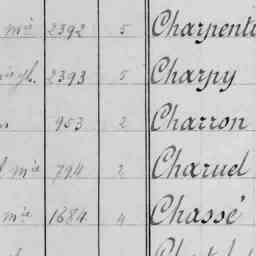 mie 2392 5 Charpenti
2393 5 Charpy
953 2 Charron
mie 794 2 Charuel
mie 1684 4 Chassé